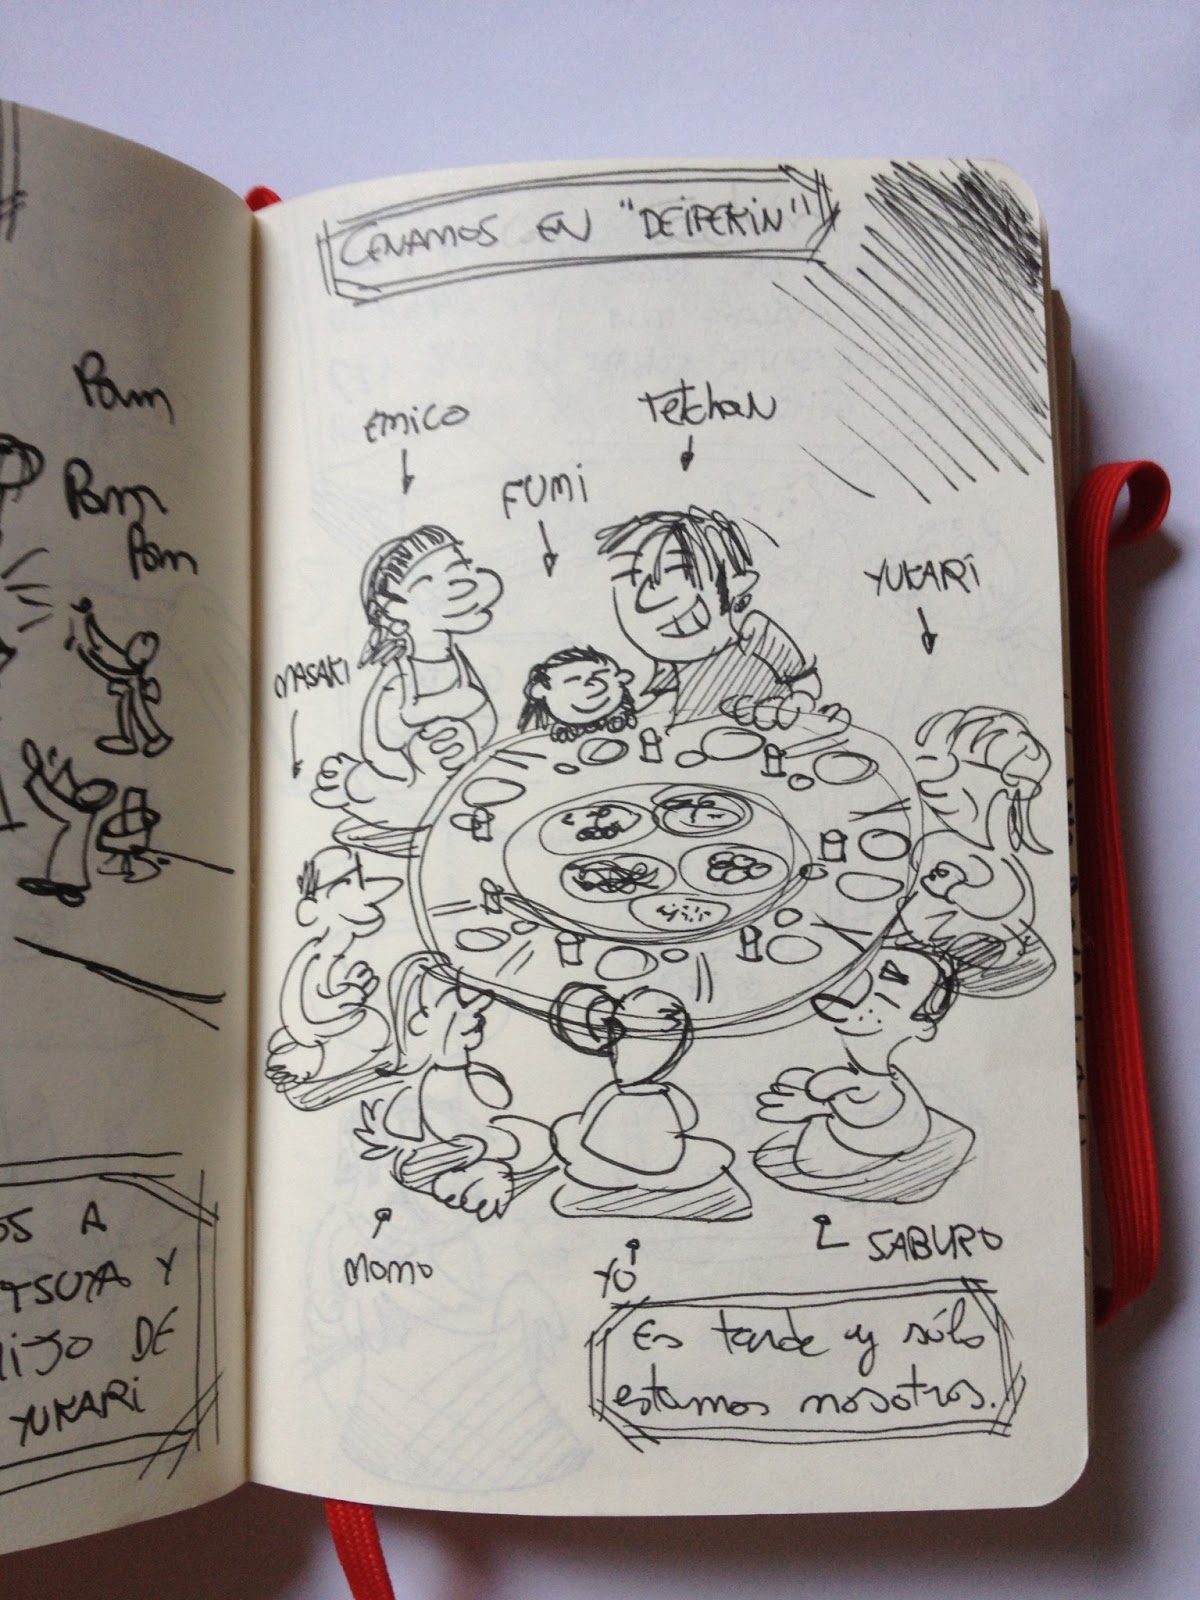 Pom
Pom
Pom
OS A
TSUYA Y
HIJO DE
YUKARI
CENAMOS EN "DEIPEKIN"
EMICO
Tetchan
FUMI
YUKARI
MASAKI
MOMO
YO
SABURO
Es tarde y sólo
estamos nosotros.